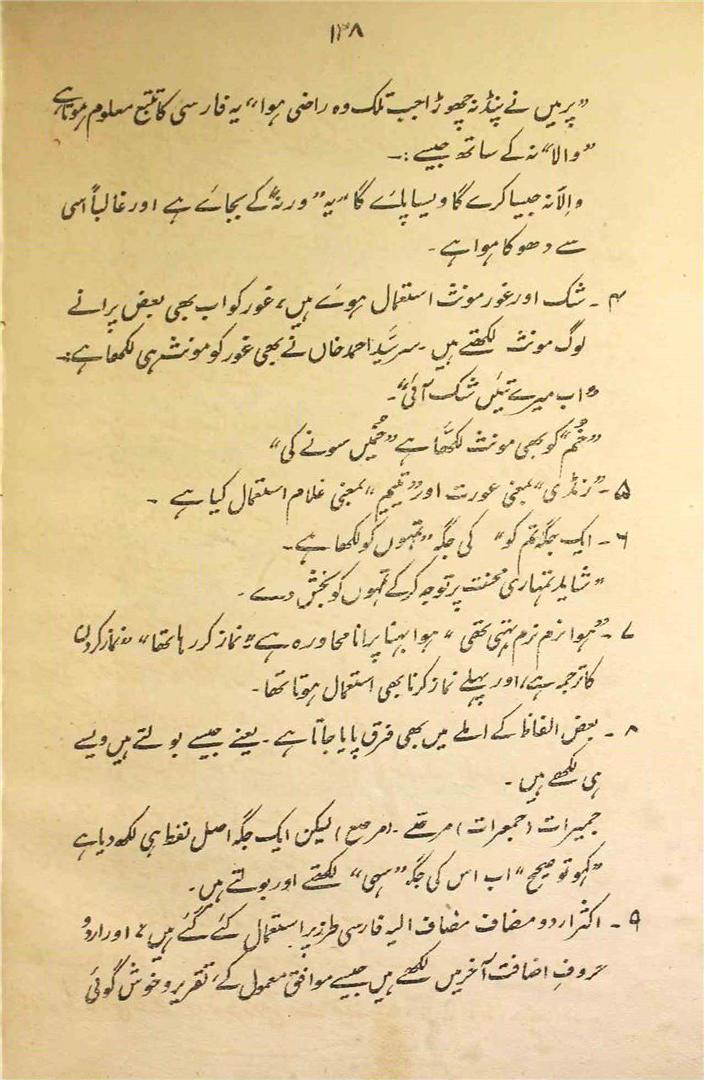 ۱۳۸
”پر میں نے پنڈ نہ چھوڑا جب تلک وہ راضی ہوا“ یہ فارسی کا تتبع معلوم ہوتا ہے
”والا“ نہ کے ساتھ جیسے :۔
والّا نہ جیسا کرے گا ویسا پائے گا“ یہ ”ورنہ“ کے بجائے ہے اور غالباً اسی
سے دھوکا ہوا ہے ۔
۴ ۔ شک اور غور مونث استعمال ہوئے ہیں، غور کو اب بھی بعض پرانے
لوگ مونث لکھتے ہیں ۔ سر سیّد احمد خاں نے بھی غور کو مونث ہی لکھا ہے :۔
”اب میرے تئیں شک آئی“ ۔
”خُم“ کو بھی مونث لکھا ہے ”خُمیں سونے کی“
۵ ۔ ”رنڈی“ بمعنی عورت اور ”یتیم“ بمعنی غلام استعمال کیا ہے ۔
۶ ۔ ایک جگہ تم کو“ کی جگہ ”تمہوں کو لکھا ہے ۔
”شاید تمہاری محنت پر توجہ کر کے تمہوں کو بخش دے ۔
۷ ۔ ”ہوا نرم نرم بہتی تھی“ ہوا بہنا پرانا محاورہ ہے ”نماز کر رہا تھا“ ”نماز کردن
کا ترجمہ ہے، اور پہلے نماز کرنا بھی استعمال ہوتا تھا ۔
۸ ۔ بعض الفاظ کے املے میں بھی فرق پایا جاتا ہے ۔ یعنے جیسے بولتے ہیں ویسے
ہی لکھے ہیں ۔
جمیرات (جمعرات) مرصّے ۔ (مرصع) لیکن ایک جگہ اصل لفظ ہی لکھ دیا ہے
”کہو تو صحیح“ اب اس کی جگہ ”سہی“ لکھتے اور بولتے ہیں ۔
۹ ۔ اکثر اردو مضاف مضاف الیہ فارسی طرز پر استعمال کئے گئے ہیں، اور اردو
حروفِ اضافت آخر میں لکھے ہیں جیسے موافق معمول کے، تقریر و خوش گوئی